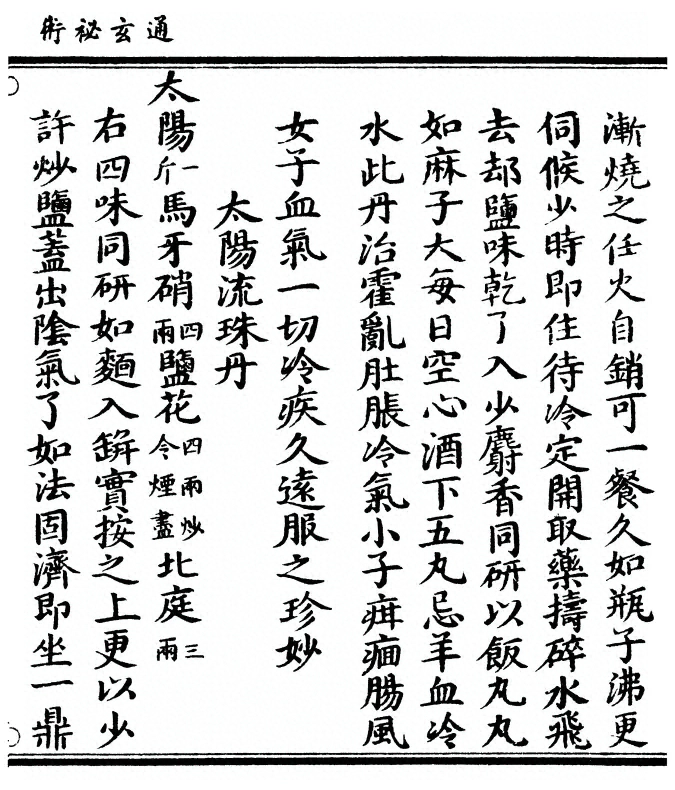 通玄祕術
漸燒之任火自銷可一餐久如瓶子沸更
伺候少時即住待冷定開取藥擣碎水飛
去却鹽味乾了入少麝香同研以飯丸丸
如麻子大每日空心酒下五丸忌羊血冷
水此丹治霍亂肚脹冷氣小子疳痼腸風
女子血氣一切冷疾久遠服之珍妙
太陽流珠丹
太陽一斤馬牙硝四兩鹽花四兩炒令煙盡北庭三兩
右四味同研如麵入缾實按之上更以少
許炒鹽蓋出陰氣了如法固濟即坐一鼎